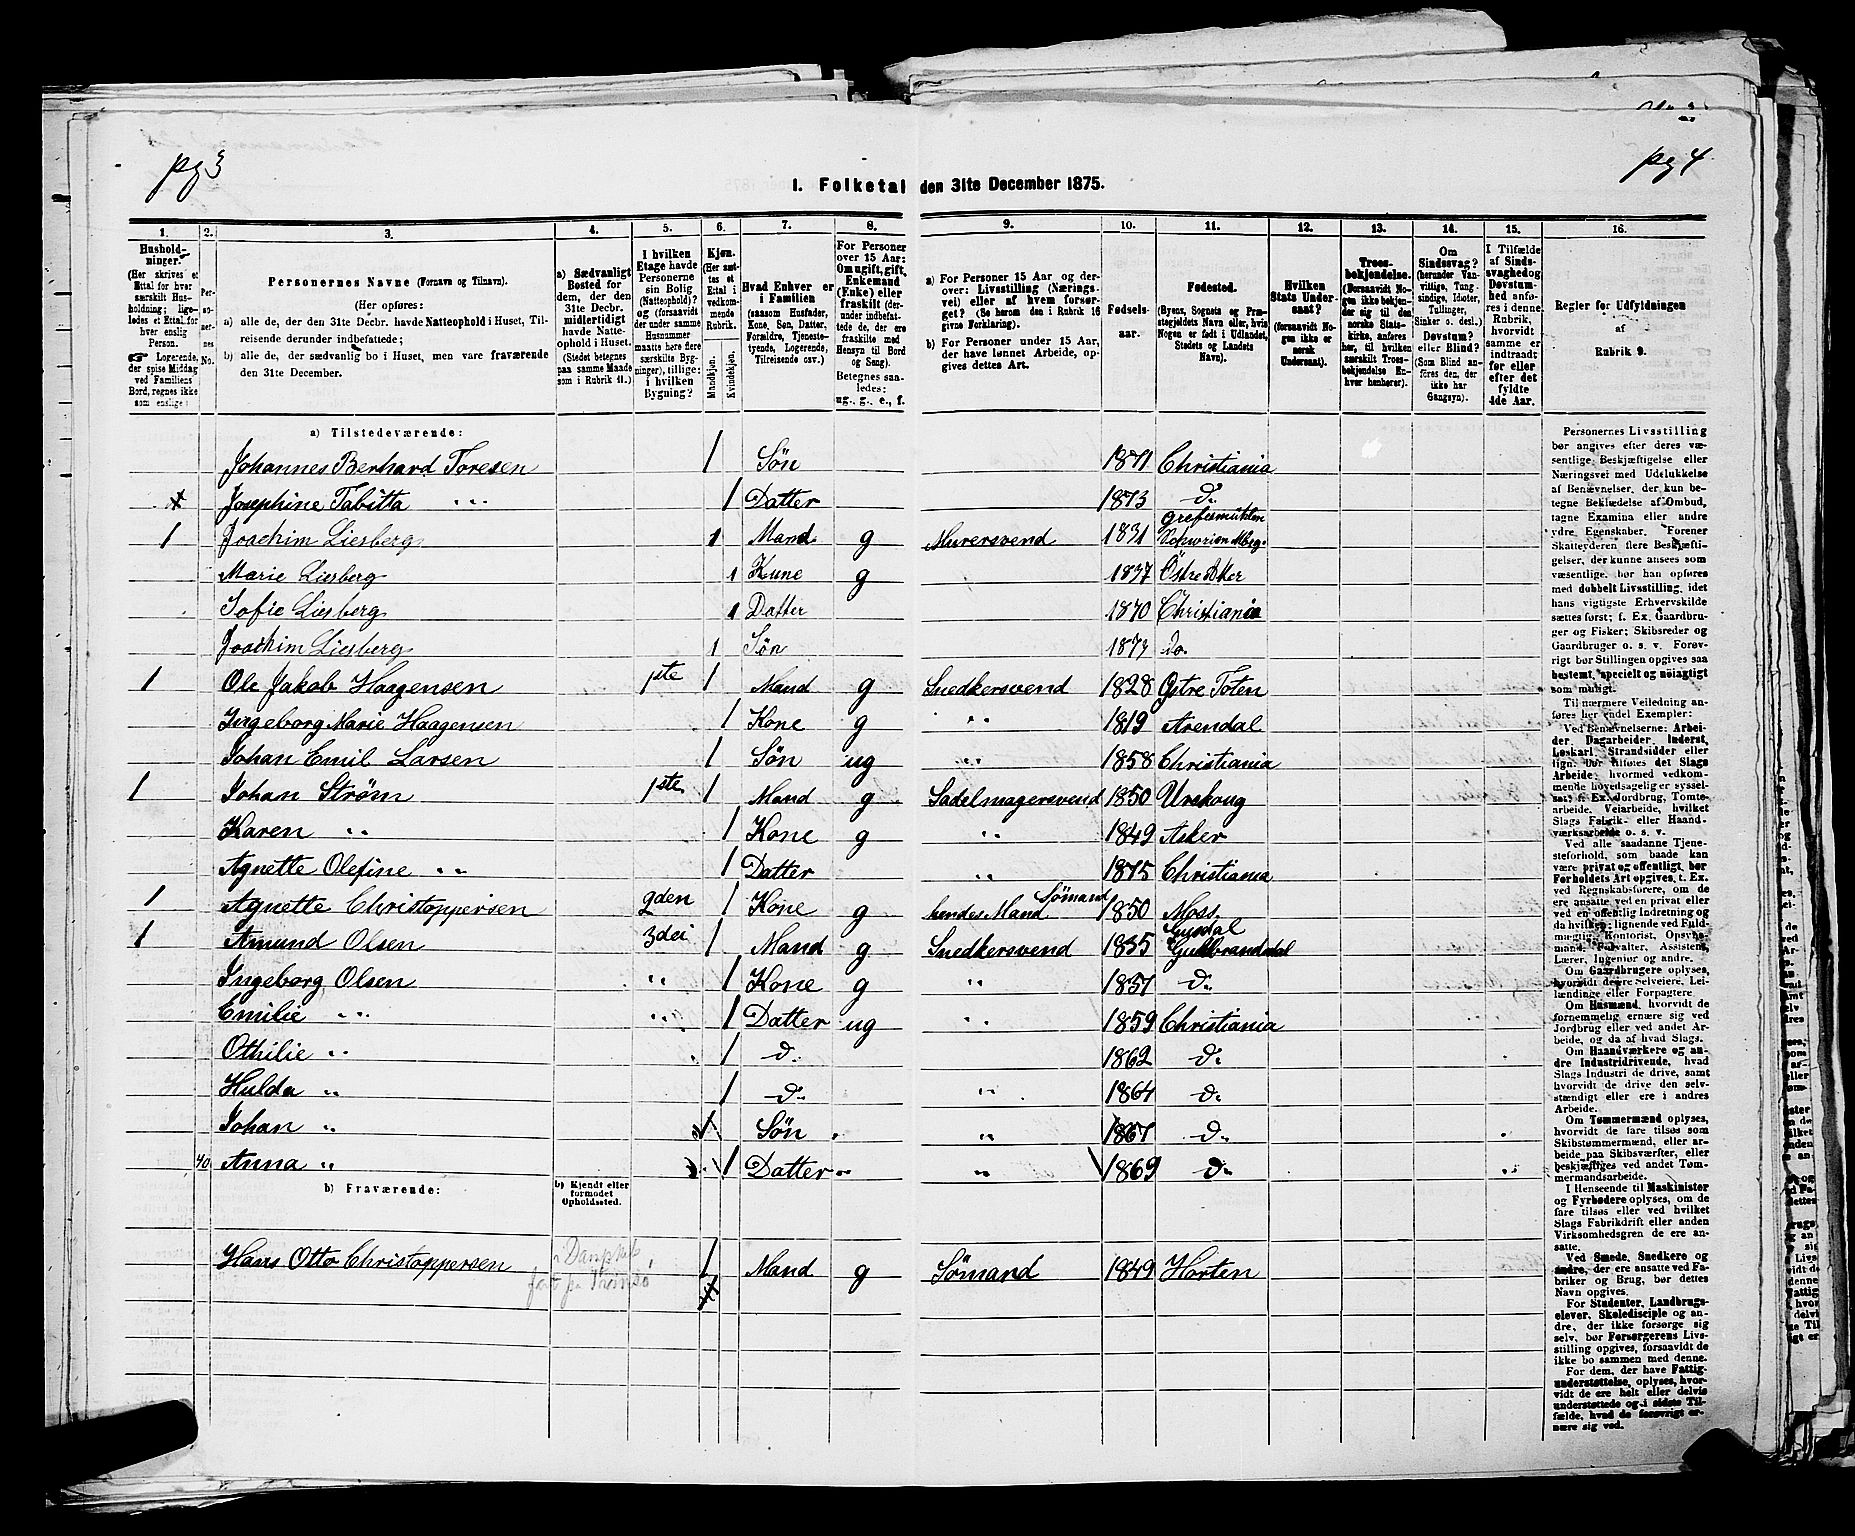 pg 3
pg 4
1. Folketal den 31te December 1875.
1. 2. 3. 4. 5. 6. 7. 8. 9. 10. 11. 12. 13. 14. 15. 16.
Husholdninger.
(Her skrives et Ettal for hver særskilt Husholdning; ligeledes et Ettal for hver enslig Person.
Logerende, der spise Middag ved Familiens Bord, regnes ikke som enslige)
Personernes No.
Personernes Navne (Fornavn og Tilnavn).
(Her opføres:
a) alle de, der den 31te Decbr. havde Natteophold i Huset, Tilreisende derunder indbefattede;
b) alle de, der sædvanlig bo i Huset, men vare fraværende den 31te December.
a) Sædvanligt Bosted for dem, der den 31te Decbr. midlertidigt havde Natteophold i Huset. (Stedet betegnes paa samme Maade som i Rubrik 11.)
I hvilken Etage havde Personerne sin Bolig (Natteophold)? og (forsaavidt der under samme Husnummer maatte høre flere særskilte Bygninger), tillige: i hvilken Bygning?
Kjøn. (Her sættes et Ettal i vedkommende Rubrik.
Mandkjøn. Kvindekjøn.
Hvad Enhver er i Familien
(saasom Husfader, Kone, Søn, Datter, Forældre, Tjenestetyende, Logerende, Tilreisende osv.)
For Personer over 15 Aar: Om ugift, gift, Enkemand (Enke) eller fraskilt (derunder indbefattede de, der ere fraskilte med Hensyn til Bord og Seng). Betegnes saaledes: ug., g., e., f.
a) For Personer 15 Aar og derover: Livsstilling (Næringsvei) eller af hvem forsørget? (Se herom den i Rubrik 16 givne Forklaring).
b) For Personer under 15 Aar, der have lønnet Arbeide, opgives dettes Art.
Fødselsaar.
Fødested.
(Byens, Sognets og Præstegjeldets Navn eller, hvis Nogen er født i Udlandet, Stedets og Landets Navn).
Hvilken Stats Undersaat? (forsaavidt Nogen ikke er norsk Undersaat).
Troesbekjendelse. (Forsaavidt Nogen ikke bekjender sig til den norske Statskirke, anføres her, til hvilken særskilt Troesbekjendelse Enhver henhører).
Om Sindssvag? (herunder Vanvittige, Tungsindige, Idioter, Tullinger, Sinker o. desl.) Døvstum? eller Blind? (Som Blind anføres den, der ikke har Gangsyn).
I Tilfælde af Sindssvaghed og Døvstumhed anføres i denne Rubrik, hvorvidt samme er indtraadt før eller efter det fyldte 4de Aar.
Regler for Udfyldningen af Rubrik 9.
a) Tilstedeværende:
Johannes Berhard Toresen 1 Søn 1871 Christiania
x Josephine Tabitta " 1 Datter 1873 do
1 Joachim Liesberg 1 Mand g Murersvend 1831 Grefesmühlen Schwerien Mbg.
Marie Liesberg 1 Kune g 1837 Östre Aker
Sofie Liesberg 1 Datter 1870 Christiania
Joachim Liesberg 1 Søn 1873 do.
1 Ole Jakob Haagensen 1ste 1 Mand g Snedkersvend 1828 Østre Toten
Ingeborg Marie Haagensen 1 Kone g " 1819 Arendal
Johan Emil Larsen 1 Søn ug " 1858 Christiania
1 Johan Strøm 1ste 1 Mand g Sadelmagersvend 1850 Urskoug
Karen " 1 Kone g " 1849 Asker
Agnette Olefine " 1 Datter " 1875 Christiania
1 Agnette Christoppersen 2den 1 Kone g hendes Mand Sømand 1850 Moss.
1 Amund Olsen 3dei 1 Mand g Snedkersvend 1835 Gusdal Gulbrandsdal
Ingeborg Olsen " 1 Kone g " 1837 do
Emilie " " 1 Datter ug " 1859 Christiania
Othilie " 1 do 1862 do
Hulda " 1 do " 1864 do
Johan " 1 Søn " 1867 do
40 Anna " 1 Datter " 1869 do
b) Fraværende:
b) Kjendt eller formodet Opholdssted.
Hans Otto Christoppersen 1 Mand g Sømand 1849 Horten
Personernes Livsstilling bør angives efter deres væsentlige Beskjæftigelse eller Næringsvei med Udelukkelse af Benævnelser, der kun betegne Beklædelse af Ombud, tagne Examina eller andre ydre Egenskaber. Forener Skatteyderen flere Beskjæftigelser, der kunne ansees som væsentlige, bør han opføres med dobbelt Livsstilling, idet hans vigtigste Erhvervskilde sættes først; f. Ex. Gaardbruger og Fisker; Skibsreder og Gaardbruger o. s. v. Forøvrigt bør Stillingen opgives saa bestemt, specielt og nøiagtigt som muligt.
Til nærmere Veiledning anføres her endel Exempler:
Ved Benævnelserne: Arbeider, Dagarbeider, Inderst, Løskarl, Strandsidder eller lign. bør tilføies det Slags Arbeide, hvormed vedkommende hovedsagelig er sysselsat; f. Ex. Jordbrug, Tomtearbeide, Veiarbeide, hvilket Slags Fabrik- eller Haandværksarbeide o. s. v.
Ved alle saadanne Tjenesteforhold, som baade kan være privat og offentligt, bør Forholdets Art opgives, t. Ex. ved Regnskabsførere, om de ere ansatte ved en privat eller ved en offentlig Indretning og da hvilken; lignende ved Fuldmægtig, Kontorist, Opsynsmand, Forvalter, Assistent, Lærer, Ingeniør og andre.
Om Gaardbrugere oplyses, hvorvidt de ere Selveiere, Leilændinge eller Forpagtere.
Om Husmænd, hvorvidt de fornemmelig ernære sig ved Jordbrug eller ved andet Arbeide, og da af hvad Slags.
Om Haandværkere og andre Industridrivende, hvad Slags Industri de drive, samt hvorvidt de drive den selvstændigt eller ere i andres Arbeide.
Om Tømmermænd oplyses, hvorvidt de fare tilsøs som Skibstømmermænd, eller arbeide paa Skibsværfter, eller beskjæftiges ved andet Tømmermandsarbeide.
I Henseende til Maskinister og Fyrbødere oplyses, om de fare tilsøs eller ved hvilket Slags Fabrikdrift eller anden Virksomhedsgren de ere ansatte.
Ved Smede, Snedkere og andre, der ere ansatte ved Fabriker og Brug, bør dettes Navn opgives.
For Studenter, Landbrugselever, Skoledisciple og andre, der ikke forsørge sig selv, bør Forsørgerens Livsstilling opgives, forsaavidt de ikke bo sammen med denne.
For dem, der have Fattigunderstøttelse, oplyses, hvorvidt de ere helt eller delvis understøttede og i sidste Tilfælde, hvad de forøvrigt ernære sig ved.